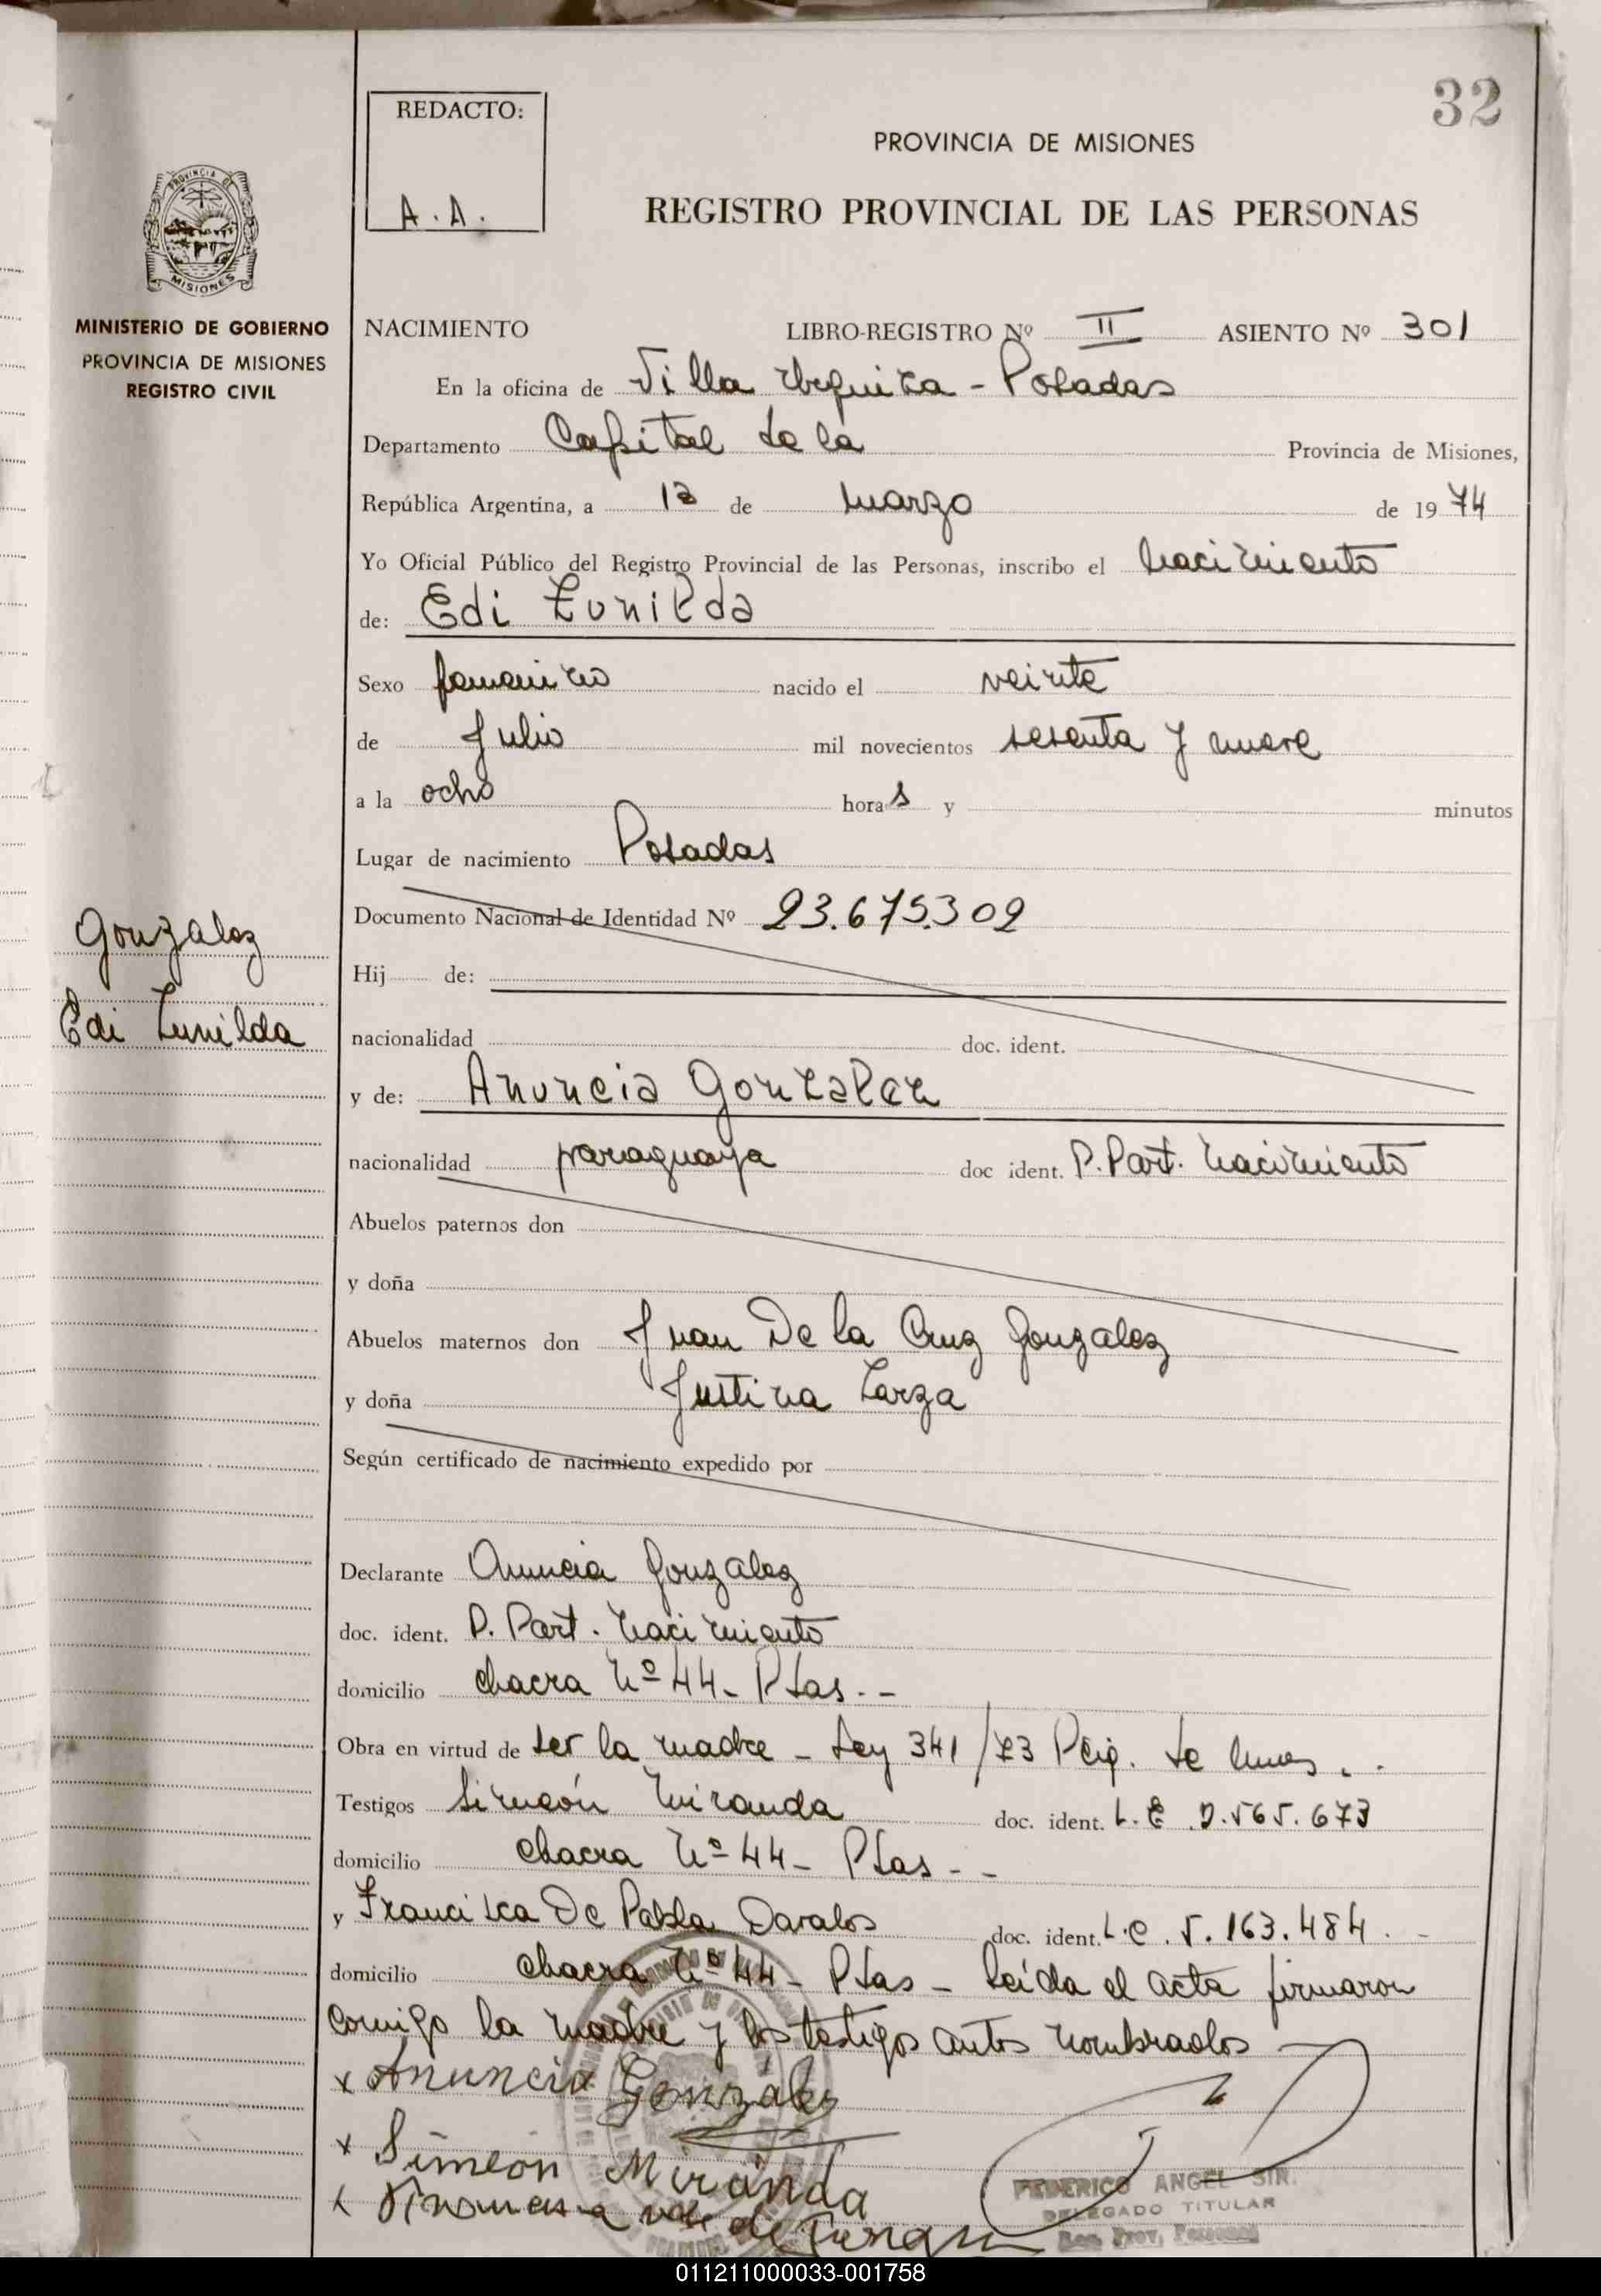 32
REDACTO:
A.A.
PROVINCIA DE MISIONES
REGISTRO PROVINCIAL DE LAS PERSONAS
PROVINCIA DE
MISIONES
MINISTERIO DE GOBIERNO
PROVINCIA DE MISIONES
REGISTRO CIVIL
NACIMIENTO LIBRO-REGISTRO Nº II ASIENTO Nº 301
En la oficina de Villa Urquiza - Posadas
Departamento Capital de la Provincia de Misiones,
República Argentina, a de marzo de 1974
Yo Oficial Público del Registro Provincial de las Personas, inscribo el nacimiento
de: Edi Zunilda
Sexo femenino nacido el veinte
de Julio mil novecientos sesenta y nueve
a la ocho horas y minutos
Lugar de nacimiento Posadas
Documento Nacional de Identidad Nº 23.675.302
Hij de:
Gonzalez
Edi Zunilda
nacionalidad doc. ident.
y de: Anuncia Gonzalez
nacionalidad paraguaya doc ident. P. Part. nacimiento
Abuelos paternos don
y doña
Abuelos maternos don Juan De la Cruz Gonzalez
y doña Justina Zarza
Según certificado de nacimiento expedido por
Declarante Anuncia Gonzalez
doc. ident. P. Part. nacimiento
domicilio chacra Nº 44 - Pdas. -
Obra en virtud de ser la madre - Ley 341/73
Testigos Simeón Miranda doc. ident. L.E 565.673
domicilio chacra Nº 44 - Pdas - -
y Francisca De Pabla Davalos doc. ident. L.C. 5.163.484. -
domicilio chacra Nº 44 - Pdas - Leída el acta firmaron
comigo la madre y los testigos antes nombrados
x Anuncia González
x Simeón Miranda
FEDERICO ANGEL SIR.
DELEGADO TITULAR
Reg. Prov. Personas
011211000033-001758